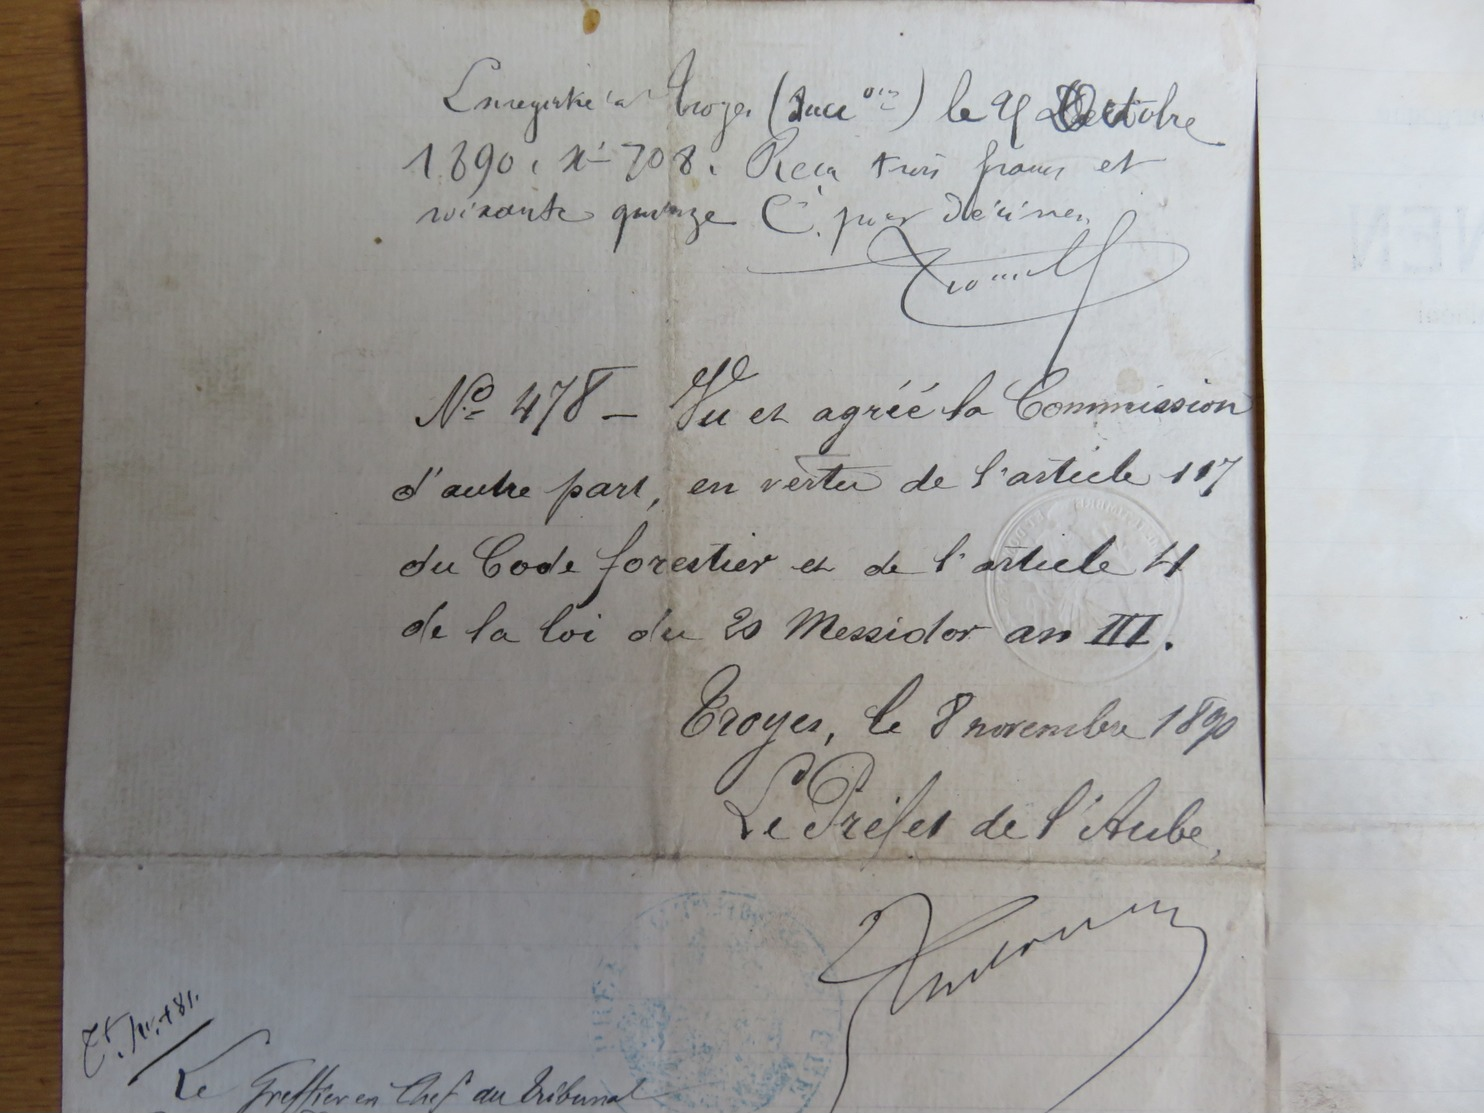 Enregistré à Troyes (Succ ons) le 25 Octobre
1890. No 708. Reçu trois francs et
soixante quinze C. pour décimes
No 478 - Vu et agréé la Commission
d'autre part, en vertu de l'article 117
du Code forestier et de l'article 4
de la loi du 20 Messidor an III.
Troyes, le 8 novembre 1890
Le Préfet de l'Aube,
Le Greffier en Chef du tribunal
NEN